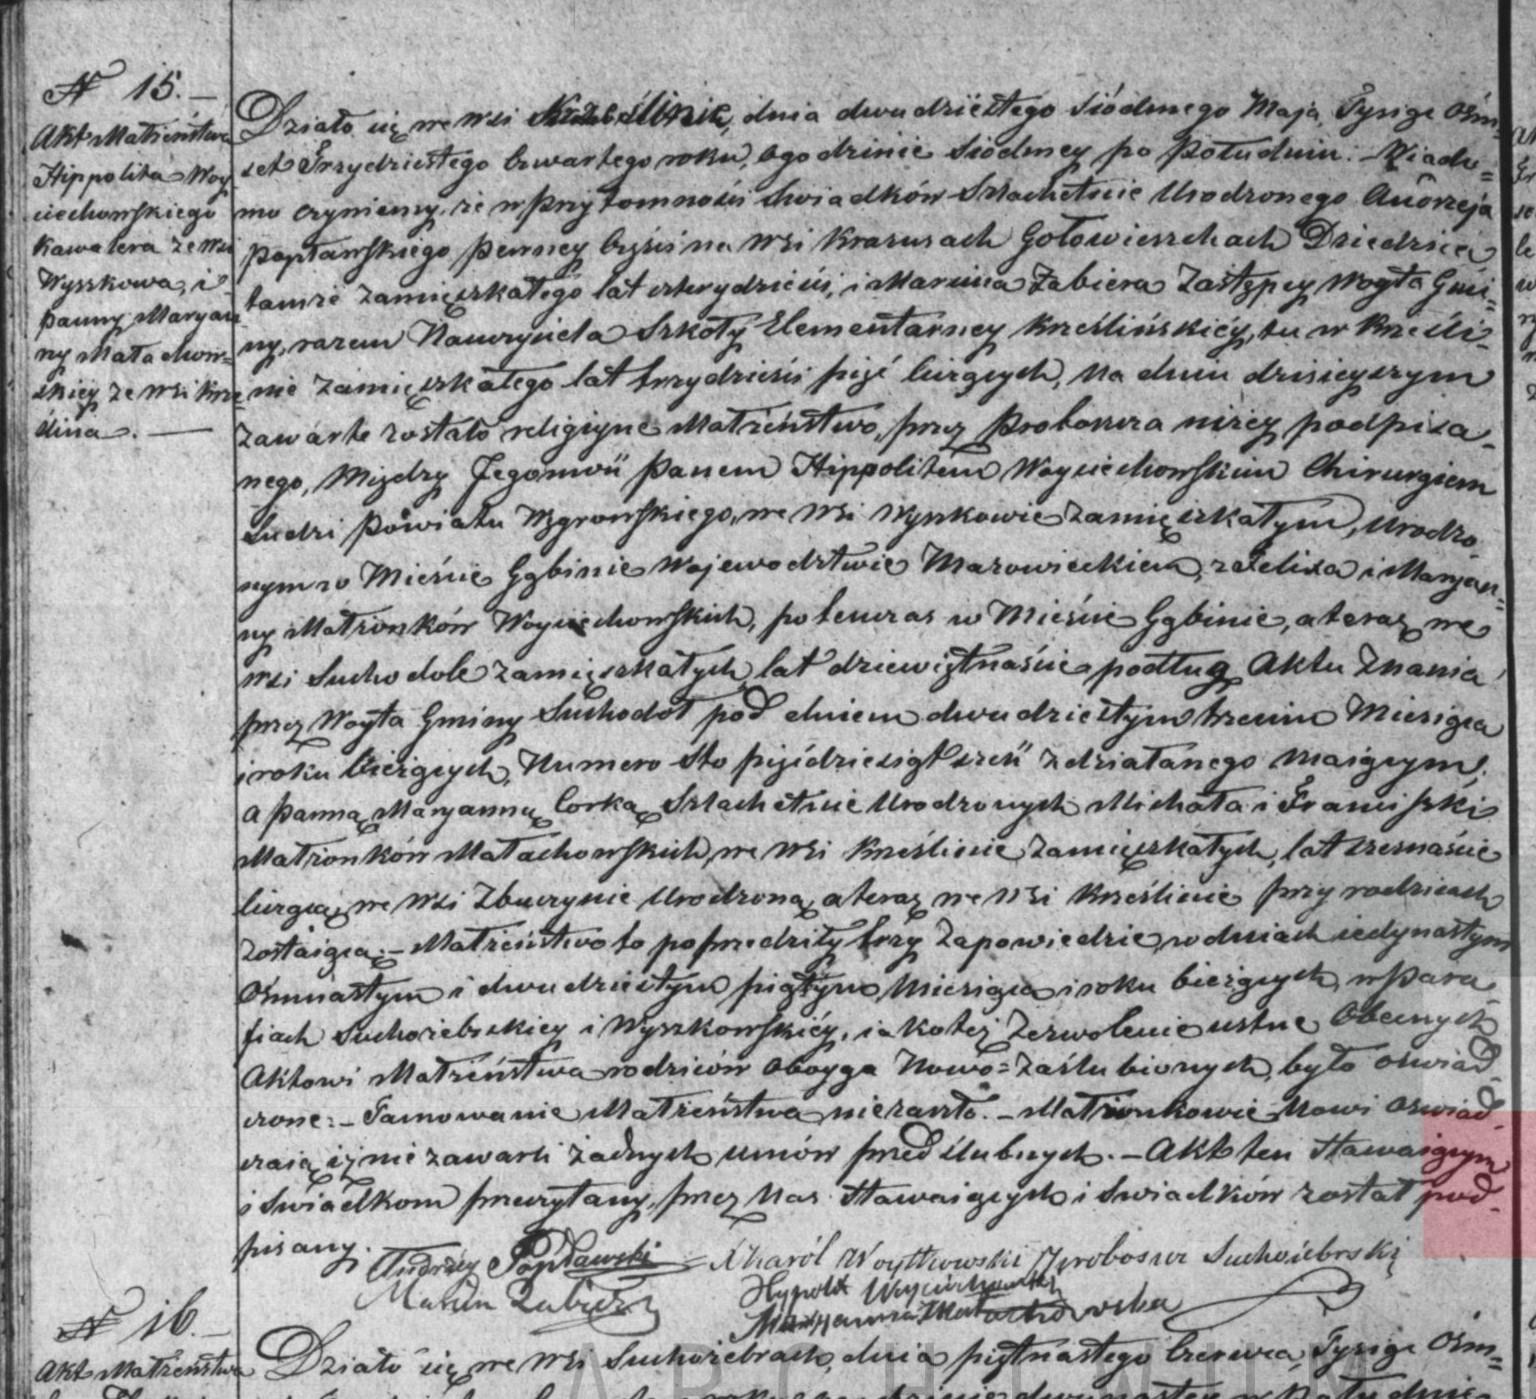 N 15.
Akt Małżeństwa
Hippolita Woy
ciechowskiego
Kawalera ze wsi
Wyszkowa, i
panny Maryan
ny Małachow=
skiey ze wsi Krze=
ślina.
Działo się we wsi Krześlinie, dnia dwudziestego siódmego Maja, Tysiąc ośm=
set Trzydziestego Czwartego roku, o godzinie siódmey po południu. Wiado=
mo czyniemy, że w przytomności świadków Szlachetnie Urodzonego Andrzeja
Popławskiego pewney części na wsi Krasusach Gołowierzchach Dziedzica
tamże zamięszkałego lat czterydzieści, i Marcina Zabiera Zastępcy Woyta Gmi=
ny, razem Nauczyciela Szkoły Elementarney Krześlińskiéy, tu w Krześli=
nie zamięszkałego lat trzydzieści pięć liczących, na dniu dzisieyszym
zawarte zostało religiyne Małżeństwo, przez Proboszcza niżey podpisa=
nego, Między Jegomość Panem Hippolitem Woyciechowskim Chirurgiem
Ludzi Powiatu Węgrowskiego, we wsi Wyszkowie zamięszkałym, Urodzo=
nym w Mieście Gąbinie Wojewodztwie Mazowieckiem, z Felixa i Maryan=
ny Małżonków Woyciechowskich, potenczas w Mieście Gąbinie, a teraz we
wsi Suchodole zamięszkałych, lat dziewiętnaście podług Aktu Znania
przez Woyta Gminy Suchodoł pod dniem dwudziestym trzecim Miesiąca
i roku bieżących, Numero Sto pięćdziesiąt sześć zdziałanego maiącym;
a Panną Maryanną Corką Szlachetnie Urodzonych Michała i Franciszki
Małżonków Małachowskich, we wsi Krześlinie zamięszkałych, lat szesnaście
liczącą, we wsi Zbuczynie Urodzoną, a teraz we wsi Krześlinie przy rodzicach
zostaiącą. – Małżeństwo to poprzedziły trzy Zapowiedzie, w dniach iedynastym
ośmnastym i dwudziestym piątym Miesiąca i roku bieżących, w Para=
fiach Suchożebrskiey i Wyszkowskiéy, iako też Zezwolenie ustne Obecnych
Aktowi Małżeństwa rodziców oboyga Nowo=Zaślubionych, było oświad=
czone. – Tamowanie Małżeństwa nie zaszło. – Małżonkowie Nowi oświad=
czaią, iż nie zawarli żadnych umów przedślubnych. – Akt ten stawaiącym
i świadkom przeczytany, przez Nas Stawaiących i Swiadków został pod=
pisany.
Andrzey Popławski Xkaról Woytkowski Proboszcz Suchożebrski
Hypolit Woyciechowski
Maryanna Małachowska
N 16.
Akt Małżeństwa
Działo się we wsi Suchożebrach, dnia piętnastego Czerwca, Tysiąc Ośm=